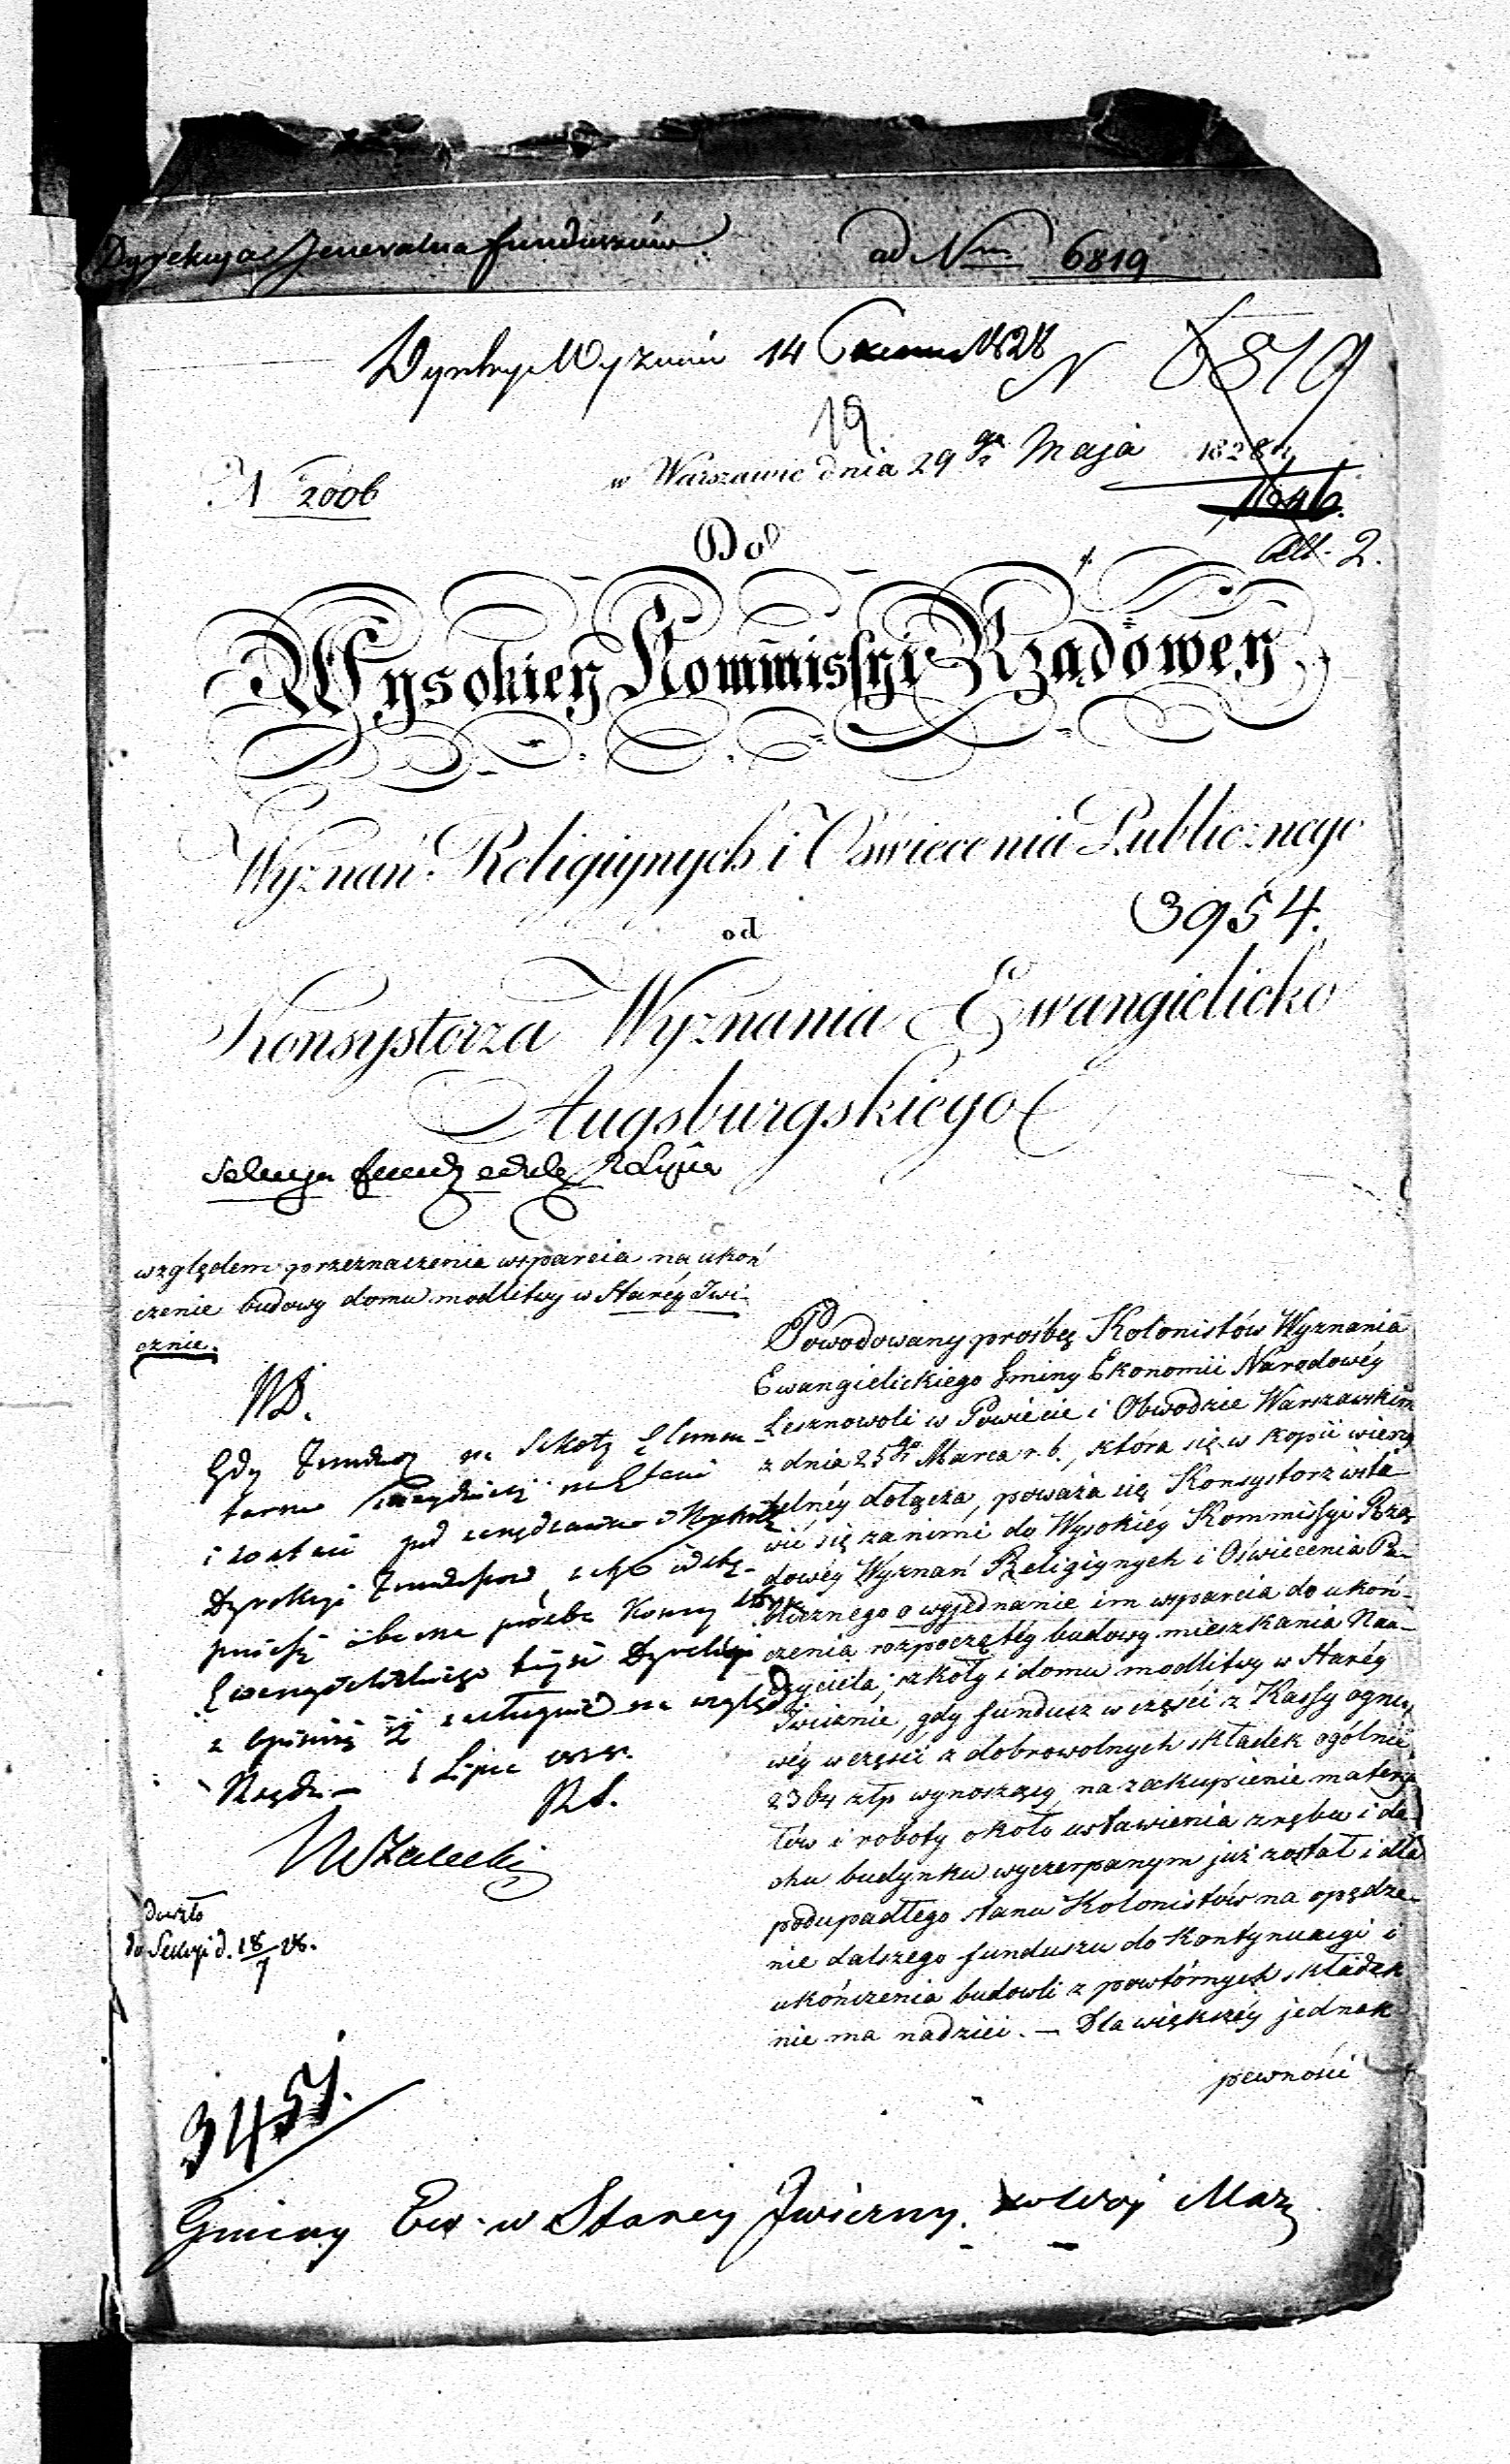 Dyrekcyja Jeneralna funduszów ad Nrm 6819
14 Czerwca 1828
N 6819
19
N 2006
w Warszawie dnia 29go Maja 1828 r.
1646.
All. 2.
Do
Wysokiey Kommissyi Rządowey
Wyznań Religiynych i Oświecenia Publicznego
3954.
od
Konsystorza Wyznania Ewangielicko
Augsburgskiego
względem przeznaczenia wsparcia na ukoń
czenie budowy domu modlitwy w Staréy Iwi-
cznie.
Powodowany prośbą Kolonistów Wyznania
Ewangielickiego Gminy Ekonomii Narodowéy
Lesznowoli w Powiecie i Obwodzie Warszawskim
z dnia 25go Marca r. b., która się w kopii wierzy
telnéy dołącza, poważa się Konsystorz wsta-
wić się za nimi do Wysokiéy Kommissyi Rzą
dowéy Wyznań Religiynych i Oświecenia Pu-
blicznego o wyjednanie im wsparcia do ukoń-
czenia rozpoczętéy budowy mieszkania Nau-
czyciela, szkoły i domu modlitwy w Staréy
Iwicznie, gdy fundusz w części z Kassy ognio
wéy w części z dobrowolnych składek ogólnie
2364 złp wynoszący, na zakupienie materya
łów i roboty około ustawienia zrębu i da-
chu budynku wyczerpanym już został i dla
podupadłego stanu Kolonistów na opędze-
nie dalszego funduszu do kontynuacyi i
ukończenia budowli z powtórnych składek
nie ma nadziei. — Dla większéy jednak
pewności
NB.
Gdy Fundusz na Szkoły Elemen
tarne
i został pod
Dyrekcyi Funduszow
prośba
Dyrekcyi
z opinią
Rządu — 1 Lipca
doszło
do Sekcyi d. 18/7 28.
3451.
Gminy Ew. w Starey Iwiczny. w Woj Maz